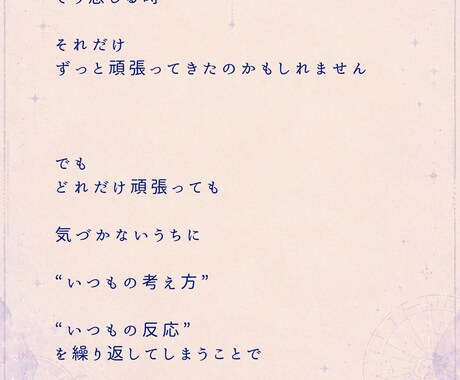 それだけ
ずっと頑張ってきたのかもしれません
でも
どれだけ頑張っても
気づかないうちに
“いつもの考え方”
“いつもの反応”
を繰り返してしまうことで